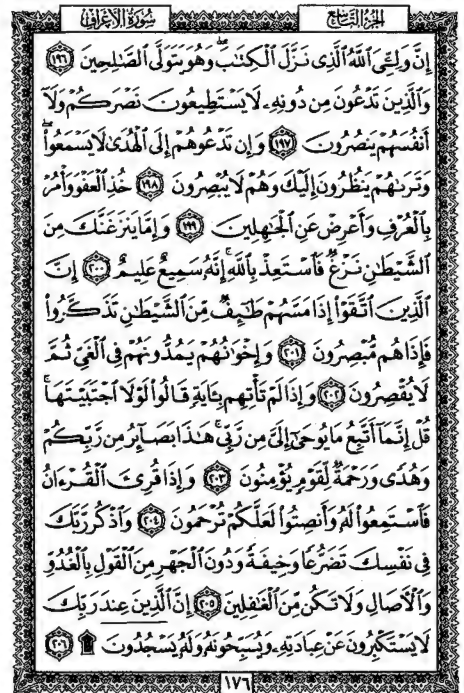 الجزء التاسع
سورة الأعراف
إِنَّ وَلِـِّۧيَ ٱللَّهُ ٱلَّذِى نَزَّلَ ٱلْكِتَـٰبَ ۖ وَهُوَ يَتَوَلَّى ٱلصَّـٰلِحِينَ ١٩٦
وَٱلَّذِينَ تَدْعُونَ مِن دُونِهِۦ لَا يَسْتَطِيعُونَ نَصْرَكُمْ وَلَآ
أَنفُسَهُمْ يَنصُرُونَ ١٩٧ وَإِن تَدْعُوهُمْ إِلَى ٱلْهُدَىٰ لَا يَسْمَعُوا۟ ۖ
وَتَرَىٰهُمْ يَنظُرُونَ إِلَيْكَ وَهُمْ لَا يُبْصِرُونَ ١٩٨ خُذِ ٱلْعَفْوَ وَأْمُرْ
بِٱلْعُرْفِ وَأَعْرِضْ عَنِ ٱلْجَـٰهِلِينَ ١٩٩ وَإِمَّا يَنزَغَنَّكَ مِنَ
ٱلشَّيْطَـٰنِ نَزْغٌ فَٱسْتَعِذْ بِٱللَّهِ ۚ إِنَّهُۥ سَمِيعٌ عَلِيمٌ ٢٠٠ إِنَّ
ٱلَّذِينَ ٱتَّقَوْا۟ إِذَا مَسَّهُمْ طَـٰٓئِفٌ مِّنَ ٱلشَّيْطَـٰنِ تَذَكَّرُوا۟
فَإِذَا هُم مُّبْصِرُونَ ٢٠١ وَإِخْوَٰنُهُمْ يَمُدُّونَهُمْ فِى ٱلْغَىِّ ثُمَّ
لَا يُقْصِرُونَ ٢٠٢ وَإِذَا لَمْ تَأْتِهِم بِـَٔايَةٍ قَالُوا۟ لَوْلَا ٱجْتَبَيْتَهَا ۚ
قُلْ إِنَّمَآ أَتَّبِعُ مَا يُوحَىٰٓ إِلَىَّ مِن رَّبِّى ۚ هَـٰذَا بَصَآئِرُ مِن رَّبِّكُمْ
وَهُدًى وَرَحْمَةٌ لِّقَوْمٍ يُؤْمِنُونَ ٢٠٣ وَإِذَا قُرِئَ ٱلْقُرْءَانُ
فَٱسْتَمِعُوا۟ لَهُۥ وَأَنصِتُوا۟ لَعَلَّكُمْ تُرْحَمُونَ ٢٠٤ وَٱذْكُر رَّبَّكَ
فِى نَفْسِكَ تَضَرُّعًا وَخِيفَةً وَدُونَ ٱلْجَهْرِ مِنَ ٱلْقَوْلِ بِٱلْغُدُوِّ
وَٱلْـَٔاصَالِ وَلَا تَكُن مِّنَ ٱلْغَـٰفِلِينَ ٢٠٥ إِنَّ ٱلَّذِينَ عِندَ رَبِّكَ
لَا يَسْتَكْبِرُونَ عَنْ عِبَادَتِهِۦ وَيُسَبِّحُونَهُۥ وَلَهُۥ يَسْجُدُونَ ۩ ٢٠٦
١٧٦